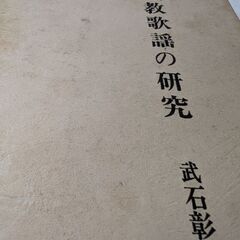 教歌謡の研究
武石彰